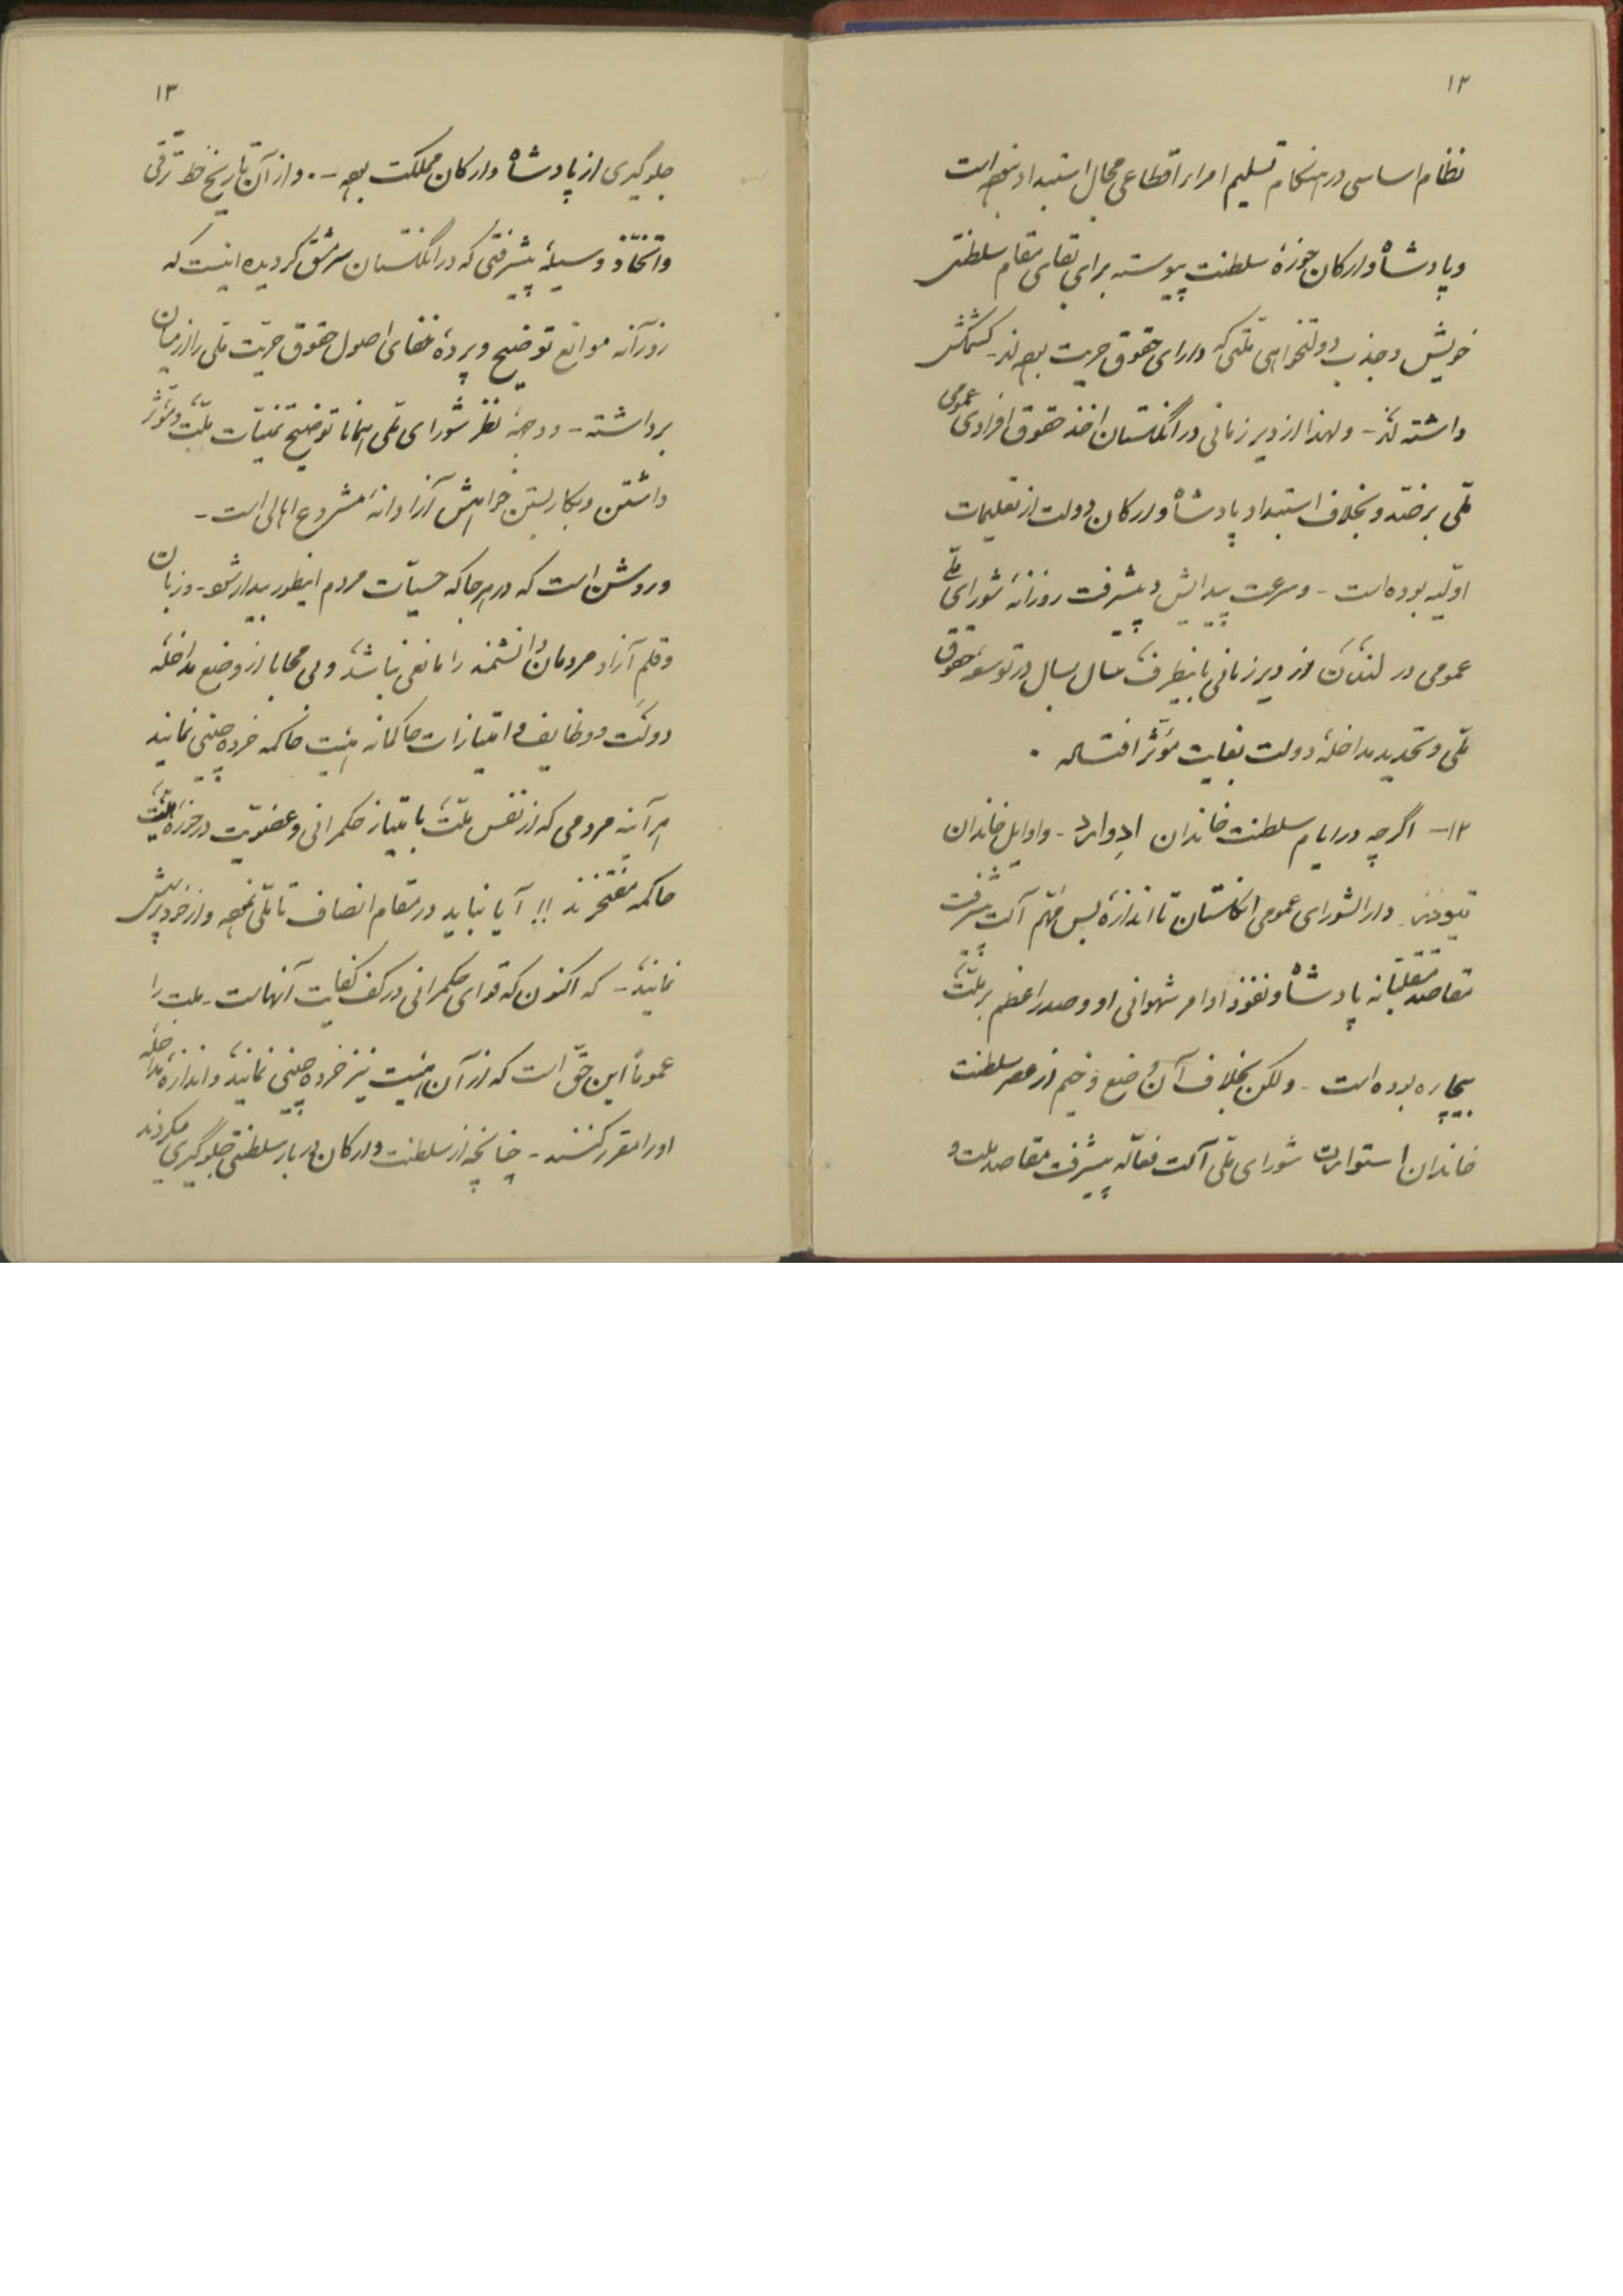 ۱۲
نظام اساسی در هنگام تسلیم امراء اقطاعی مجال استبداد نبوده است
و پادشاه و ارکان حوزهٔ سلطنت پیوسته برای بقای مقام سلطنتی
خویش و جذب دولتخواهی ملّتی که دارای حقوق حریت بوده‌اند - کشمکش
داشته‌اند - و لهذا از دیر زمانی در انگلستان اخذ حقوق افرادی عمومی
ملّی بر ضدّ و بخلاف استبداد پادشاه و ارکان دولت از تعلیمات
اوّلیه بوده است - و سرعت پیدایش و پیشرفت روزانهٔ شورای ملّی
عمومی در لندن از دیر زمانی باینطرف سال بسال در توسعهٔ حقوق
ملّی و تحدید مداخلهٔ دولت بغایت مؤثّر افتاده .
۱۲- اگر چه در ایام سلطنت خاندان ادوارد - و اوایل خاندان
تیودُر - دارالشورای عمومی انگلستان تا اندازهٔ بس مهّم آلت پیشرفت
مقاصد متقلبانه پادشاه و نفوذ اوامر شهوانی او و صدر اعظم بر ملّت
بیچاره بوده است - ولکن بخلاف آن وضع وخیم از عصر سلطنت
خاندان استوارت شورای ملّی آلت فعّاله پیشرفت مقاصد ملت و
۱۳
جلوگیری از پادشاه و ارکان مملکت بوده - . و از آن تاریخ خط ترّقی
و اتّخاذ وسیلهٔ پیشرفتی که در انگلستان سرمشق گردیده اینست که
روزآنه موانع توضیح و پردهٔ خفای اصول حقوق حریّت ملّی را از میان
برداشته - و وجههٔ نظر شورای ملّی همانا توضیح تمنیّات ملّت و مؤثّر
داشتن و بکار بستن خواهش آزادانهٔ مشروع اهالی است -
و روشن است که در هر جا که حسیّات مردم اینطور بیدار شود - و زبان
و قلم آزاد مردمان دانشمند را مانعی نباشد و بی محابا از وضع مداخلهٔ
دولت و وظایف و امتیازات حاکمانه هیئت حاکمه خرده چینی نمایند
هر آینه مردمی که از نفس ملّت با متیاز حکمرانی و عضویّت در حوزهٔ هیئت
حاکمه مفتخرند !! آیا نباید در مقام انصاف تأمّلی نموده و از خود پرسش
نمایند - که اکنون که قوای حکمرانی در کف کفایت آنهاست - ملت را
عموماً این حقّ است که از آن هیئت نیز خرده چینی نمایند و اندازهٔ مداخله
او را مقرر کنند - چنانچه از سلطنت و ارکان دربار سلطنتی جلوگیری میکردند